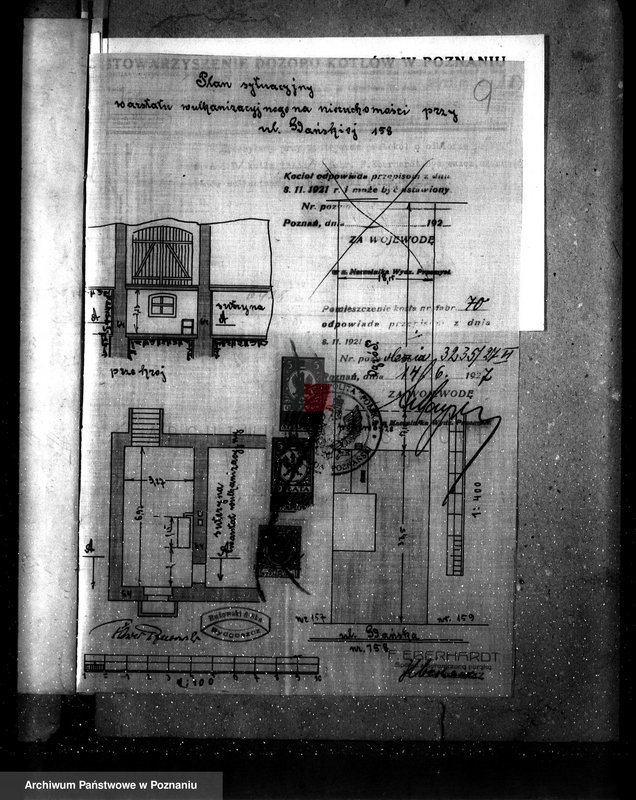 STOWARZYSZENIE DOZORU KOTŁÓW W POZNANIU
9
Plan sytuacyjny
warsztatu wulkanizacyjnego na nieruchomości przy
ul. Gdańskiej 158
Kocioł odpowiada przepisom z dnia
8. 11. 1921 r. i może być ustawiony.
Nr. pozw
Poznań, dnia 192
ZA WOJEWODĘ
w z. Naczelnika Wydz. Przemysł.
Pomieszczenie kotła nr. fabr. 70
odpowiada przepisom z dnia
8. 11. 1921
Nr. poz 3235/27 VI
Poznań, dnia 14/6. 1927
ZA WOJEWODĘ
Naczelnika Wydz. Przemysł.
suteryna
przekrój
3,27
suteryna
warsztat wulkanizacyjny
1:400
22,5
nr 157
nr. 159
ul. Gdańska
nr. 158
Butowski & Ska
Bydgoszcz
F. EBERHARDT
1:100
Archiwum Państwowe w Poznaniu